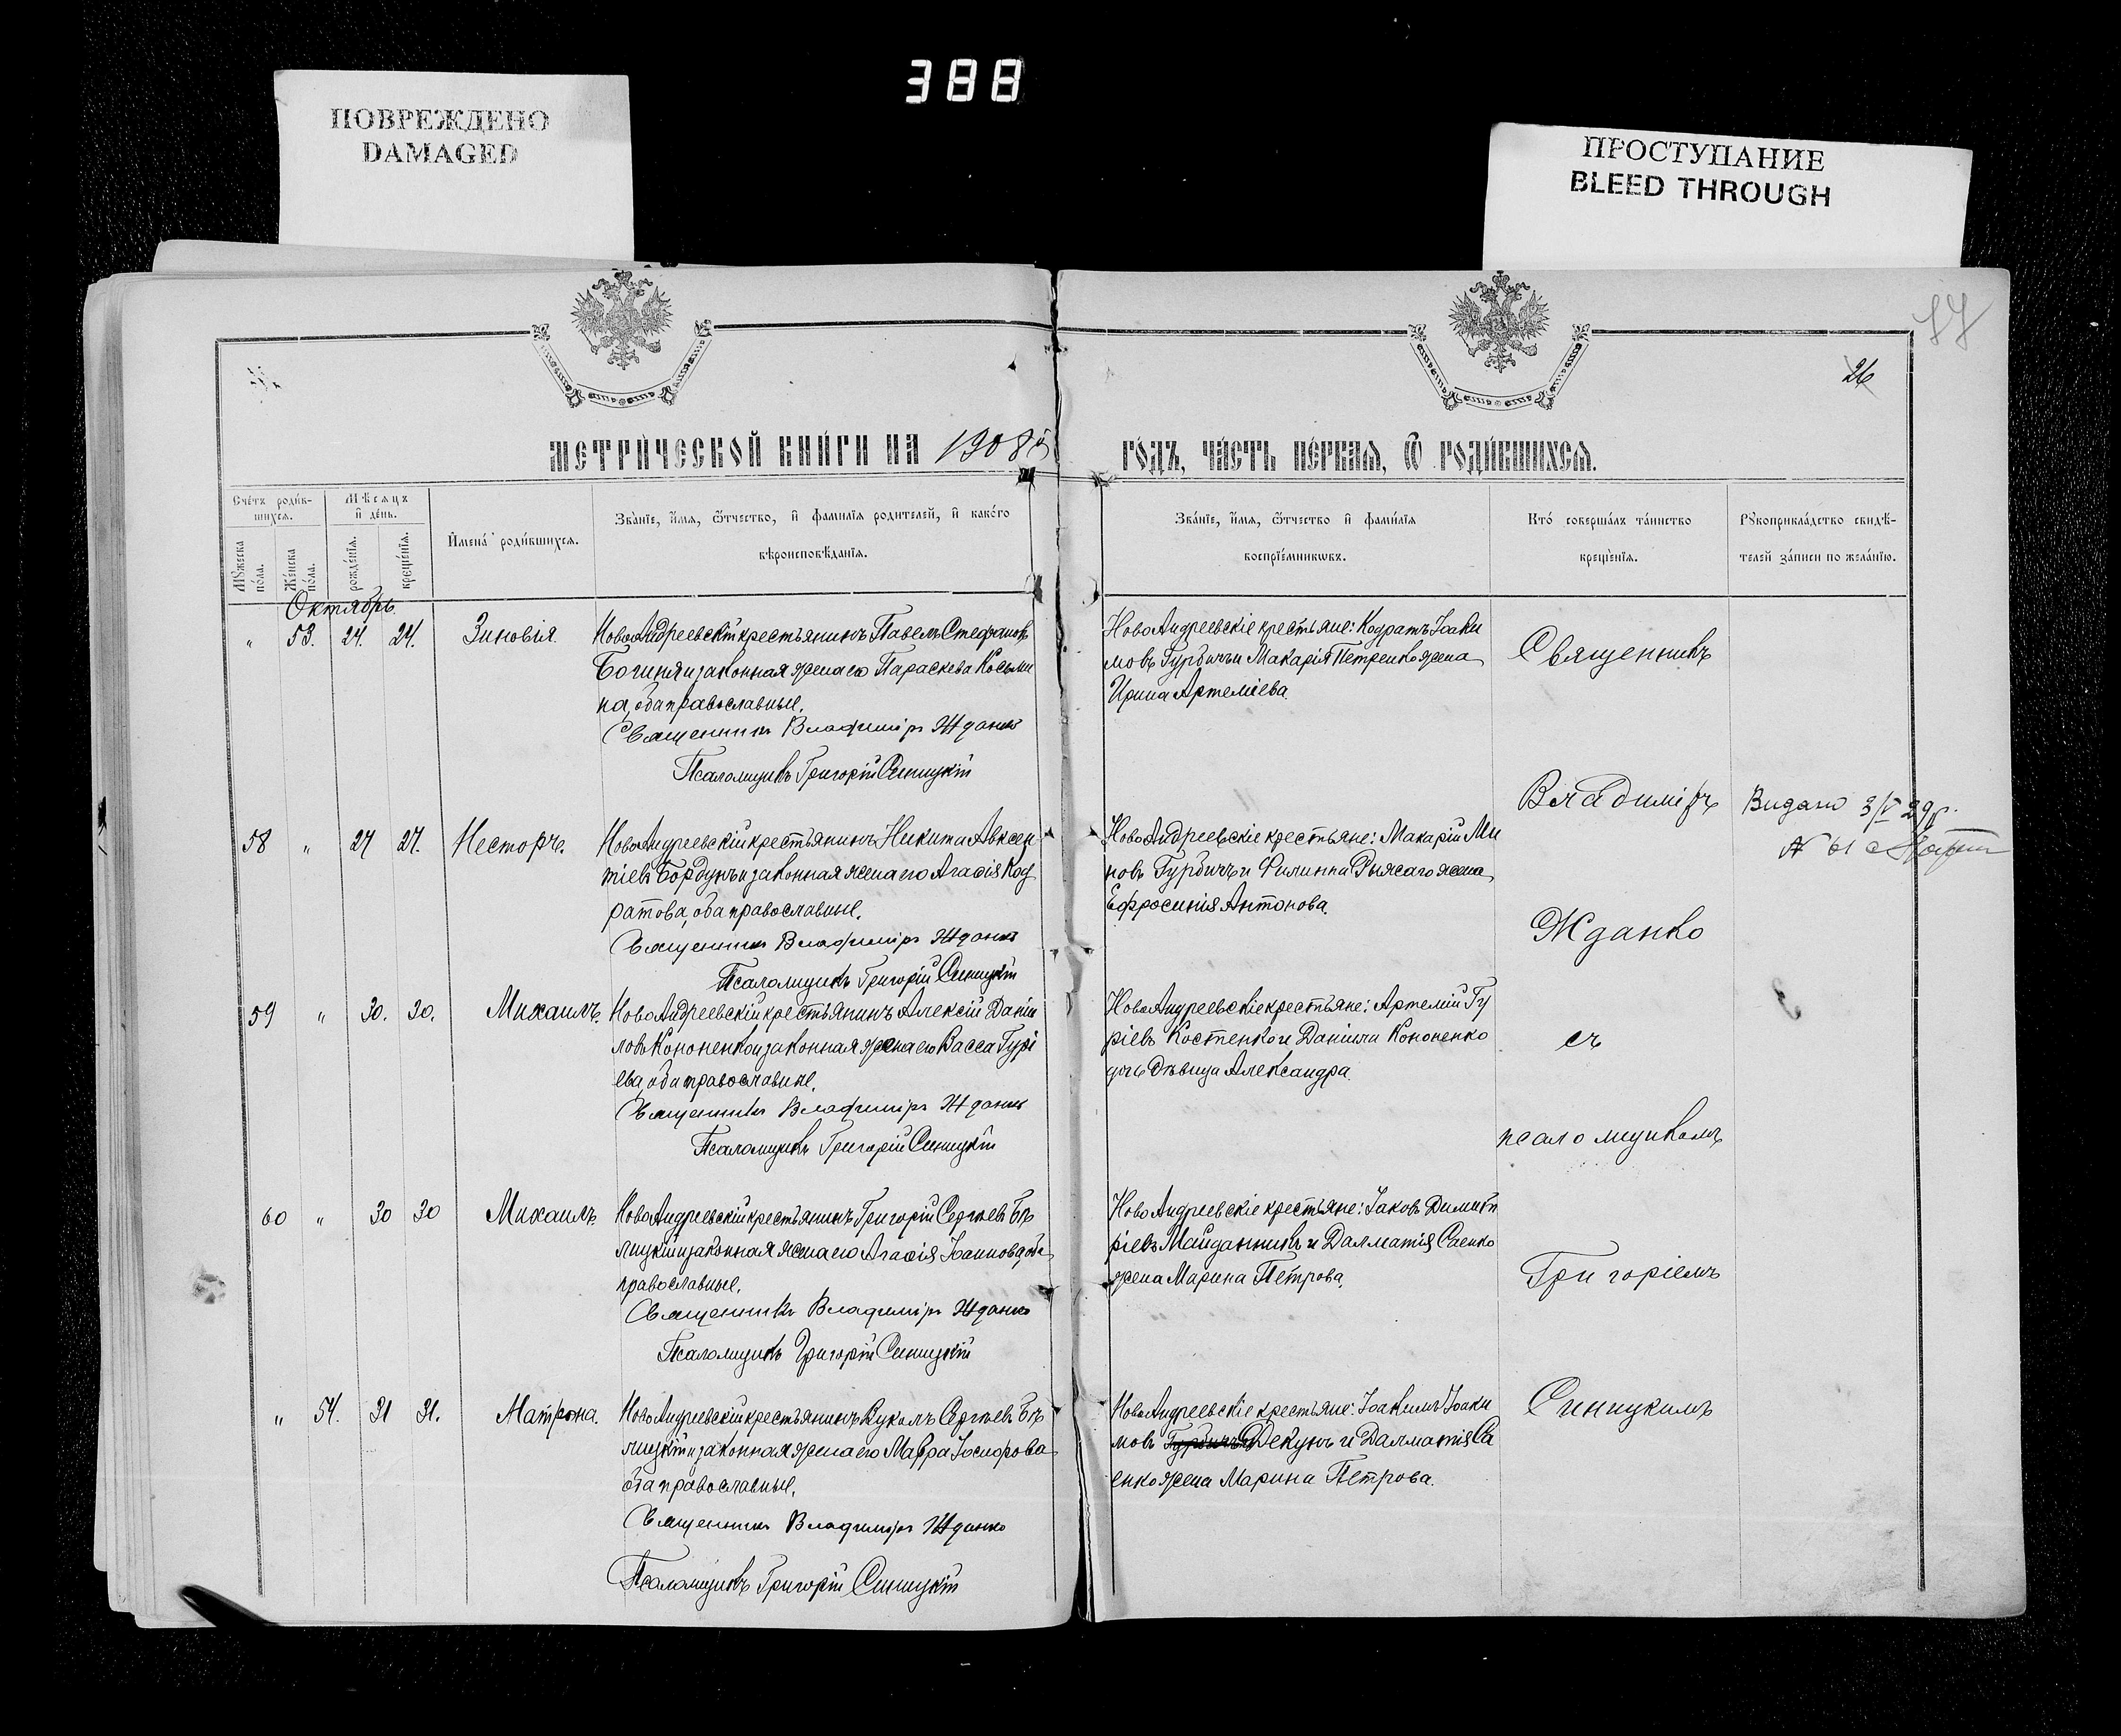 388
ПОВРЕЖДЕНО
DAMAGED
ПРОСТУПАНИЕ
BLEED THROUGH
26
МЕТРИ́ЧЕСКОЙ КНИ́ГИ НА 1908й
ГО́ДЪ, ЧА́СТЬ ПЕ́РВАЯ, Ѿ РОДИ́ВШИХСЯ.
Сче́тъ роди́в-
шихся.
Мѣ́сяцъ
и҆ де́нь.
Мꙋ́жеска
по́ла.
Же́нска
по́ла.
рожде́нїѧ.
креще́нїѧ.
И҆мена̀ роди́вшихся.
Зва́нїе, и҆́мѧ, ѻ҆́тчество, и҆ фамилїѧ родителей, и҆ како́го
вѣроисповѣ́данїѧ.
Зва́нїе, и҆́мѧ, ѻ҆́тчество и҆ фами́лїѧ
воспрїе́мникѡвъ.
Кто̀ соверша́лъ та́инство
креще́нїѧ.
Рꙋкоприкла́дство свидѣ́-
телей за́писи по жела́нїю.
Октябрь.
„ 53. 24. 24. Зиновія.
НовоАндреевскій крестьянинъ Павелъ Стефановъ
Богиня и законная жена его Параскева Косьми
на, оба православные.
Священникъ Владиміръ Жданко
Псаломщикъ Григорій Синицкій
НовоАндреевскіе крестьяне: Кодратъ Іоаки
мовъ Гурбичъ и Макарія Петренко жена
Ирина Артеміева.
58 „ 27 27. Несторъ.
НовоАндреевскій крестьянинъ Никита Авксен-
тіевъ Бордунъ и законная жена его Агаѳія Код
ратова, оба православные.
Священникъ Владиміръ Жданко
Псаломщикъ Григорій Синицкій
НовоАндреевскіе крестьяне: Макарій Ми
новъ Гурбичъ и Филиппа Рыжаго жена
Ефросинія Антонова.
59 „ 30. 30. Михаилъ.
НовоАндреевскій крестьянинъ Алексій Даніи
ловъ Кононенко и законная жена его Васса Гурі
ева, оба православные.
Священникъ Владиміръ Жданко
Псаломщикъ Григорій Синицкій
НовоАндреевскіе крестьяне: Артемій Гу
ріевъ Костенко и Даніила Кононенко
дочь дѣвица Александра.
60 „ 30 30 Михаилъ
НовоАндреевскій крестьянинъ Григорій Сергѣевъ Бѣ
лицкій и законная жена его Агаѳія Іоаннова, оба
православные.
Священникъ Владиміръ Жданко
Псаломщикъ Григорій Синицкій
НовоАндреевскіе крестьяне: Іаковъ Димит
ріевъ Майданникъ и Далматія Саенко
жена Марина Петрова.
„ 54. 31 31. Матрона.
НовоАндреевскій крестьянинъ Вуколъ Сергѣевъ Бѣ
лицкій и законная жена его Мавра Іосифова
оба православные.
Священникъ Владиміръ Жданко
Псаломщикъ Григорій Синицкій
НовоАндреевскіе крестьяне: Іоакимъ Іоаки
мовъ Гурбичъ Декунъ и Далматія Са
енко жена Марина Петрова.
Священникъ
Владиміръ
Жданко
съ
псаломщикомъ
Григоріемъ
Синицкимъ
Видано 3/V 29 р.
№ 61